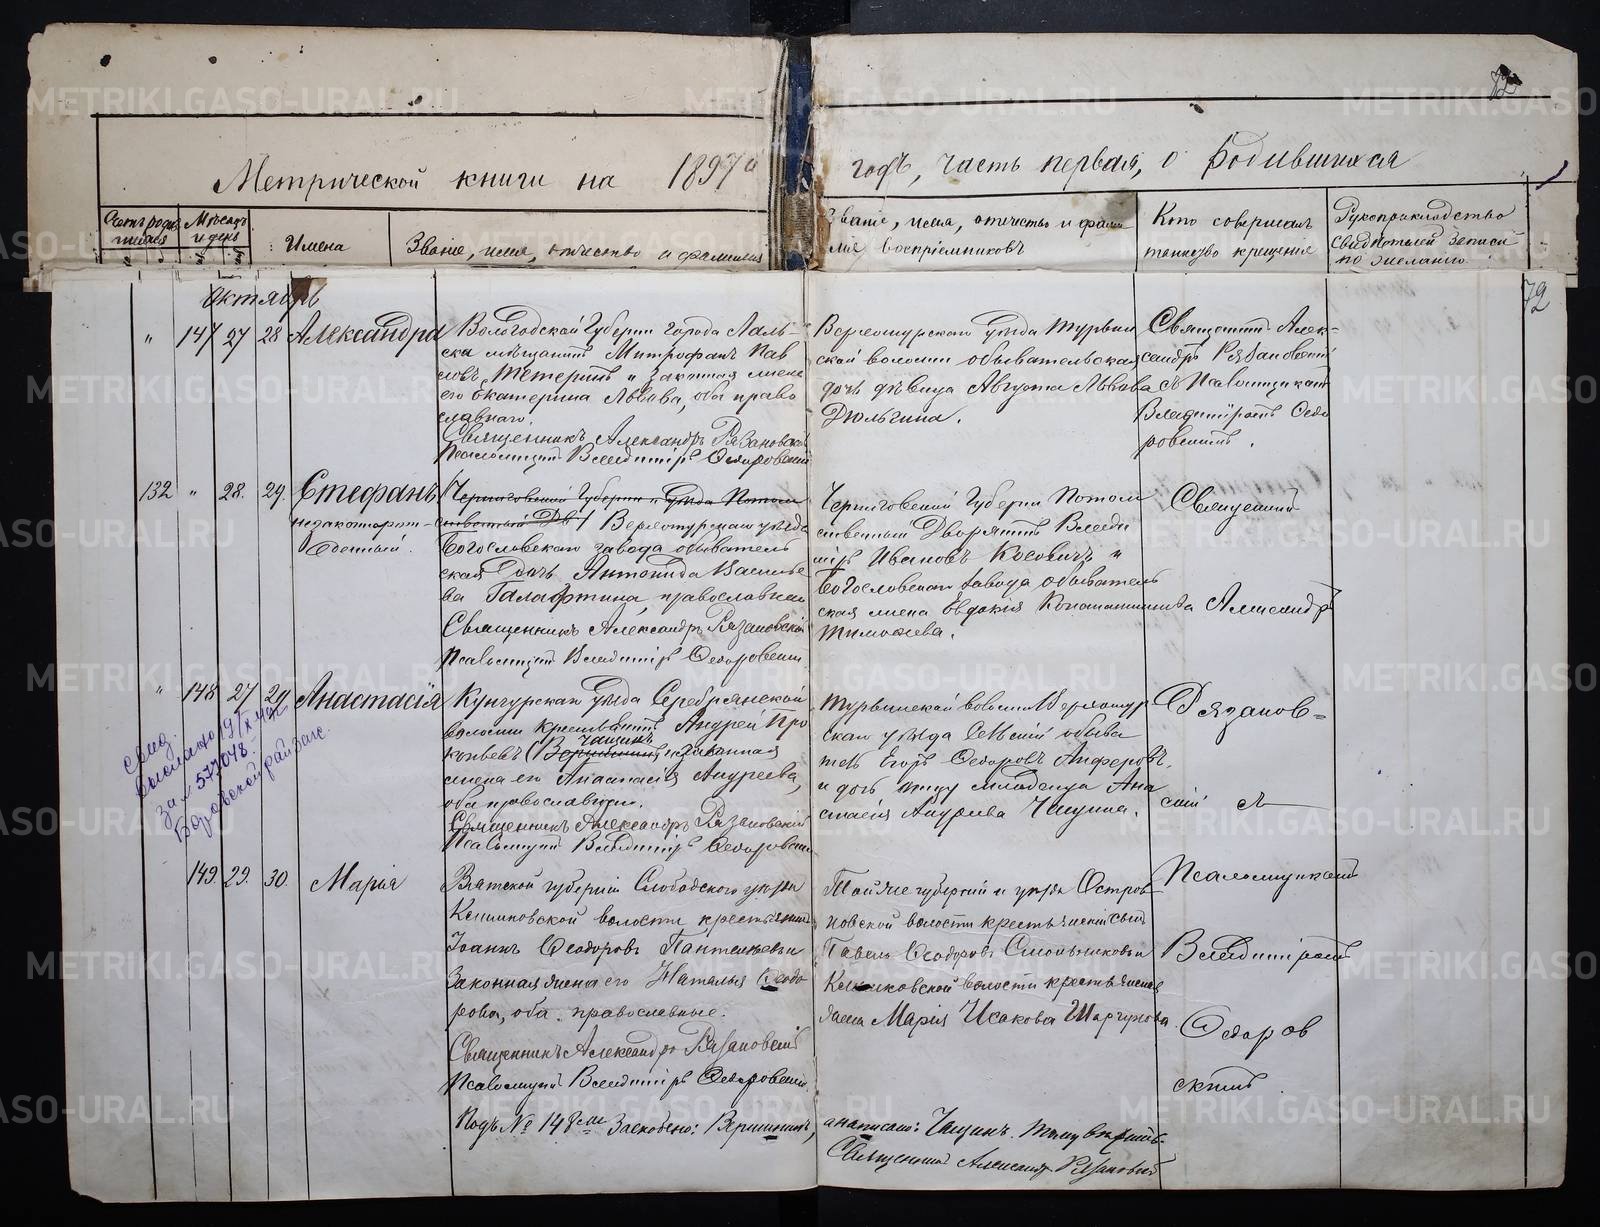 Метрической книги на 1897й годъ, часть первая, о родившихся
Счетъ родив-
шихся
Мѣсяцъ
и день
Имена
Званіе, имя, отчество и фамилія
Званіе, имя, отчество и фами
лія воспріемниковъ
Кто совершалъ
таинство крещенія
Рукоприкладство
свидѣтелей записи
по желанію
72
Октябрь
" 147 27 28 Александра
Вологодской Губерніи города Лаль-
ска мѣщанинъ Митрофанъ Пав
ловъ Тетеринъ и законная жена
его Екатерина Львова, оба право
славнаго.
Священникъ Александръ Рязановскій
Псаломщикъ Владиміръ Ѳедоровскій
Верхотурскаго уѣзда Турьин
ской волости обывательская
дочь дѣвица Августа Львова
Дюльгина.
Священникъ Алек-
сандръ Рязановскій
съ Псаломщикомъ
Владиміромъ Ѳедо
ровскимъ.
132 " 28. 29. Стефанъ
незаконорож-
денный.
(Черниговской Губерніи и уѣзда Потом
ственный Дв) Верхотурскаго уѣзда
Богословскаго завода обыватель
ская дочь Антонида Василье
ва Галафтина, православная
Священникъ Александръ Рязановскій
Псаломщикъ Владиміръ Ѳедоровскій
Черниговской Губерніи Потом
ственный Дворянинъ Влади
міръ Ивановъ Косовичъ и
Богословскаго завода обыватель
ская жена Евдокія Константинова
Тимофеева.
Священникъ
Александръ
" 148 27 29 Анастасія
Кунгурскаго уѣзда Серебрянской
волости крестьянинъ Андрей Про
копьевъ (Вершининъ) Чащинъ и законная
жена его Анастасія Андреева,
оба православные.
Священникъ Александръ Рязановскій
Псаломщикъ Владиміръ Ѳедоровскій
Турьинской волости Верхотур
скаго уѣзда сельскій обыва
тель Егоръ Ѳедоровъ Анферовъ.
и дочь отцу младенца Ана
стасія Андреева Чащина.
Рязанов=
скій съ
за № 577048.
149. 29. 30. Марія
Вятской губерніи Слободского уѣзда
волости крестьянинъ
Іоаннъ Ѳеодоровъ Пантелѣевъ и
Законная жена его Наталья Ѳеодо
рова, оба православные.
Священникъ Александръ Рязановскій
Псаломщикъ Владиміръ Ѳедоровскій
Той же губерніи и уѣзда Остров
новской волости крестьянскій сынъ
Павелъ Ѳеодоровъ Смольниковъ и
волости крестьянская
жена Марія Исакова Шаргунова
Псаломщикомъ
Владиміромъ
Ѳедоров
скимъ
Подъ № 148мъ Заскоблено: Вершининъ, а написано: Чащинъ. Тому вѣрить
Священникъ Александръ Рязановскій
METRIKI.GASO-URAL.RU